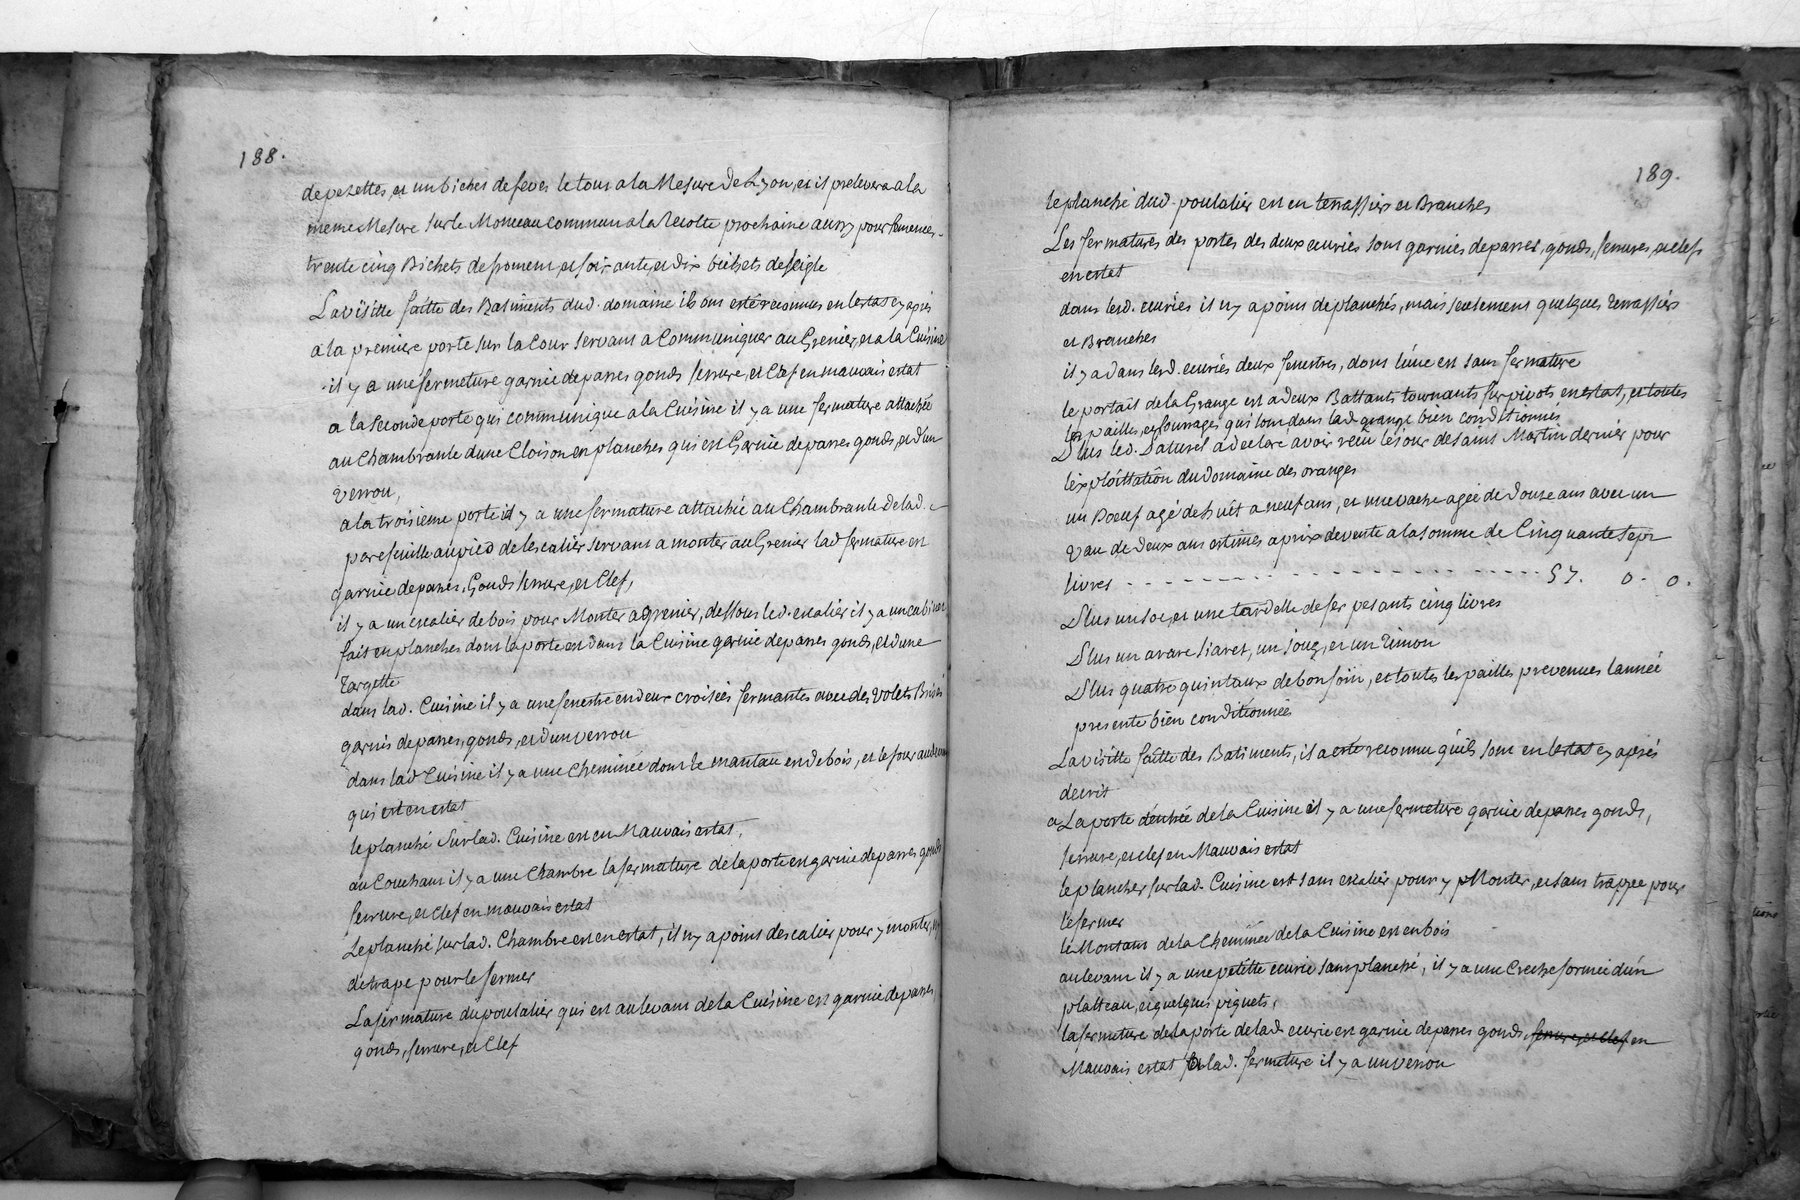 188.
de pezettes, et un bichet de feves le tout a la Mesure de Lyon, et il prelevera a la
meme Mesure sur le Monceau commun a la recolte prochaine aussy pour semences
trente cinq Bichets de froment, et soixante, et dix bichets de seigle
La visitte faitte des Batiments dud. domaine ils ont estés reconnus en lestat cy apres
a la premiere porte sur la Cour servant a Communiquer au Grenier, et a la Cuisine
il y a une fermeture garnie de parres gonds serrure, et Clef en mauvais estat
a la seconde porte qui communique a la Cuisine il y a une fermature attachée
au Chambranle dune Cloison en planches qui est Garnie de parres gonds, et d'un
verrou,
a la troisieme porte il y a une fermature attachée au Chambranle de lad.
parefeuille au pied de lescalier servant a monter au Grenier lad fermature est
garnie de parres, Gonds serrure, et Clef,
il y a un escalier de bois pour Monter au grenier, dessous led. escalier il y a un cabinet
fait en planches dont la porte est dans la Cuisine garnie de parres gonds, et dune
Targette
dans lad. Cuisine il y a une fenestre en deux croisées fermantes avec des volets Brisés
garnis de parres, gonds, et d'un verrou
dans lad Cuisine il y a une Cheminée dont le mantau est de bois, et le four au devant
qui est en estat
le planché sur lad. Cuisine est en Mauvais estat,
au Couchant il y a une Chambre la fermature de la porte est garnie de parres, gonds
serrure, et Clef en mauvais estat
Le planché sur lad. Chambre est en estat, il n'y a point descalier pour y monter, ny
de trape pour le fermer
La fermature du poulalier qui est au levant de la Cuisine est garnie de parres
gonds, serrure, et Clef
189.
le planché dud. poulalier est en terrassier et Branches
Les fermatures des portes des deux ecuries sont garnies de parres, gonds, serrures, et clefs
en estat
dans lesd. ecuries il n'y a point de planchés, mais seulement quelques terrassiers
et Branches
il y a dans lesd. ecuries deux fenestres, dont l'une est sans fermature
le portail de la Grange est a deux Battants tournants sur pivots en estat, et toutes
les pailles, et fourrages qui sont dans lad grange bien conditionnés
Plus led. Saturel a declare avoir reçu le jour de saint Martin dernier pour
l'exploittation du domaine des oranges
un Boeuf agé de huit a neuf ans, et une vache agée de douse ans avec un
vau de deux ans estimés a prix de vente a la somme de Cinquante sept
livres - - - - - - - - - - - - - - - - 57. 0. 0.
Plus un soc, et une tardelle de fer pesants cinq livres
Plus un arare s'aret, un joug, et un Timon
Plus quatre quintaux de bon foin, et toutes les pailles prevenues l'année
presente bien conditionnées
La visitte faitte des Batiments, il a esté reconnu quils sont en lestat cy aprés
decrit
a La porte d'entrée de la Cuisine il y a une fermeture garnie de parres gonds,
serrure, et clef en Mauvais estat
le plancher sur lad. Cuisine est sans escalier pour y Monter, et sans trappe pour
le fermer
le Montant de la Cheminée de la Cuisine est en bois
au levant il y a une petitte ecurie sans planché, il y a une Creche formée d'un
platteau, et quelques piquets,
la fermeture de la porte de lad. ecurie est garnie de parres gonds, serrure, et Clef en
Mauvais estat sur lad. fermeture il y a un verrou